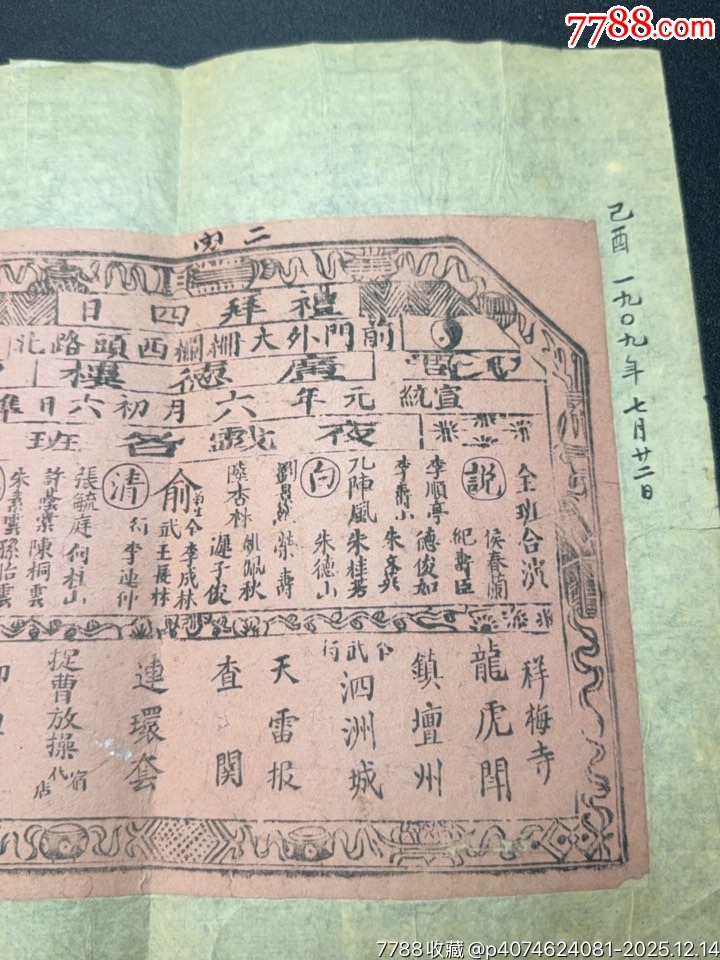 7788.com
己酉 一九〇九年 七月廿二日
二
禮拜四日
前門外大柵欄西頭路北
廣德樓
宣統元年六月初六日準
夜戲
班
全班合演
祥梅寺
說
侯春蘭
紀壽臣
龍虎鬥
李順亭
德俊如
李壽山
鎮壇州
九陣風
朱桂芳
朱文英
白
朱德山
武行
泗洲城
天雷报
陸杏林
姚佩秋
查關
俞
李成林
王長林
清
行
李連仲
連環套
張毓庭
何桂山
許蔭棠
陳桐雲
捉曹放操
代宿店
朱素雲
孫怡雲
7788收藏 @p4074624081-2025.12.14